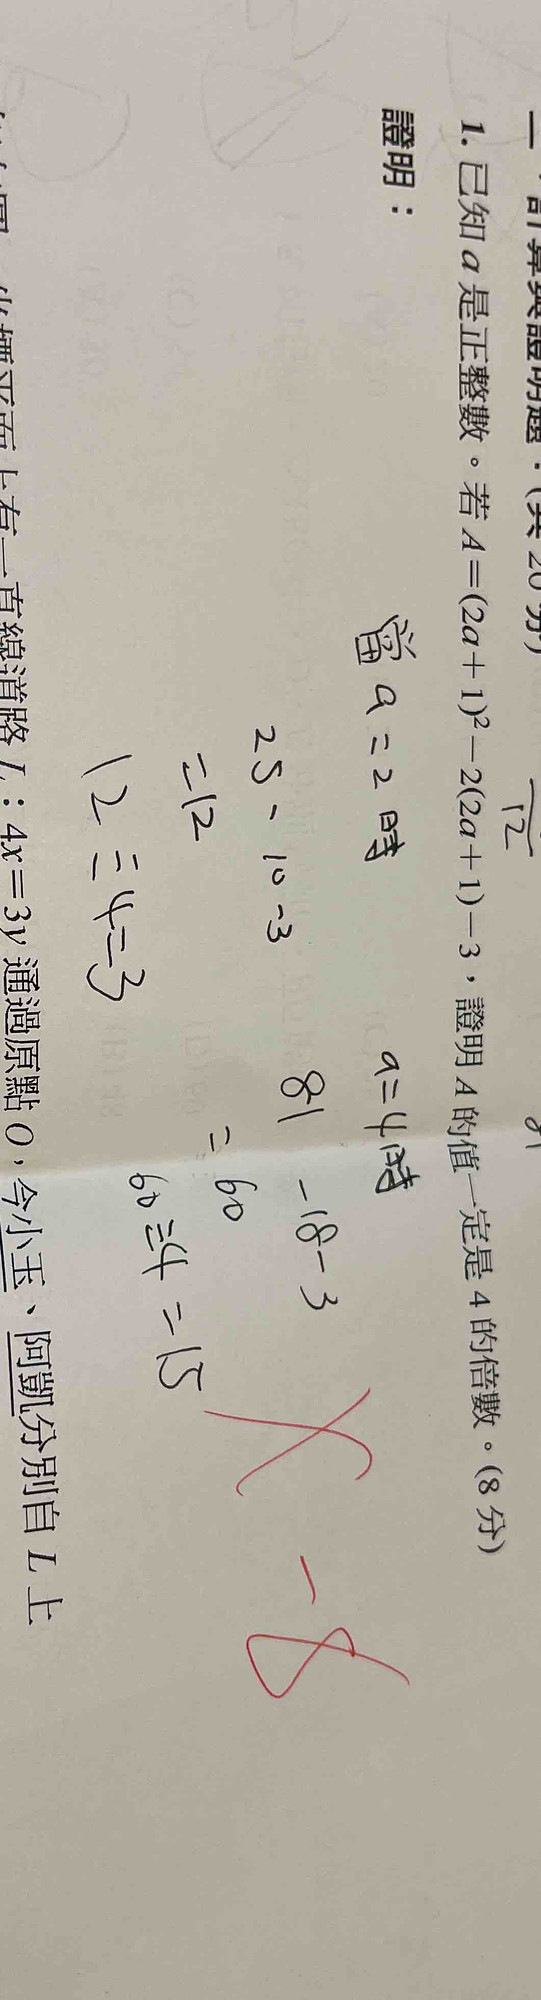 二、計算與證明題：(共 20 分)
12
1. 已知 a 是正整數。若 A＝(2a＋1)²－2(2a＋1)－3，證明 A 的值一定是 4 的倍數。(8 分)
證明：
當 a = 2 時
25 - 10 - 3
= 12
12 ÷ 4 = 3
a = 4 時
81 - 18 - 3
= 60
60 ÷ 4 = 15
-8
坐標平面上有一直線道路 L：4x＝3y 通過原點 O，今小玉、阿凱分別自 L 上